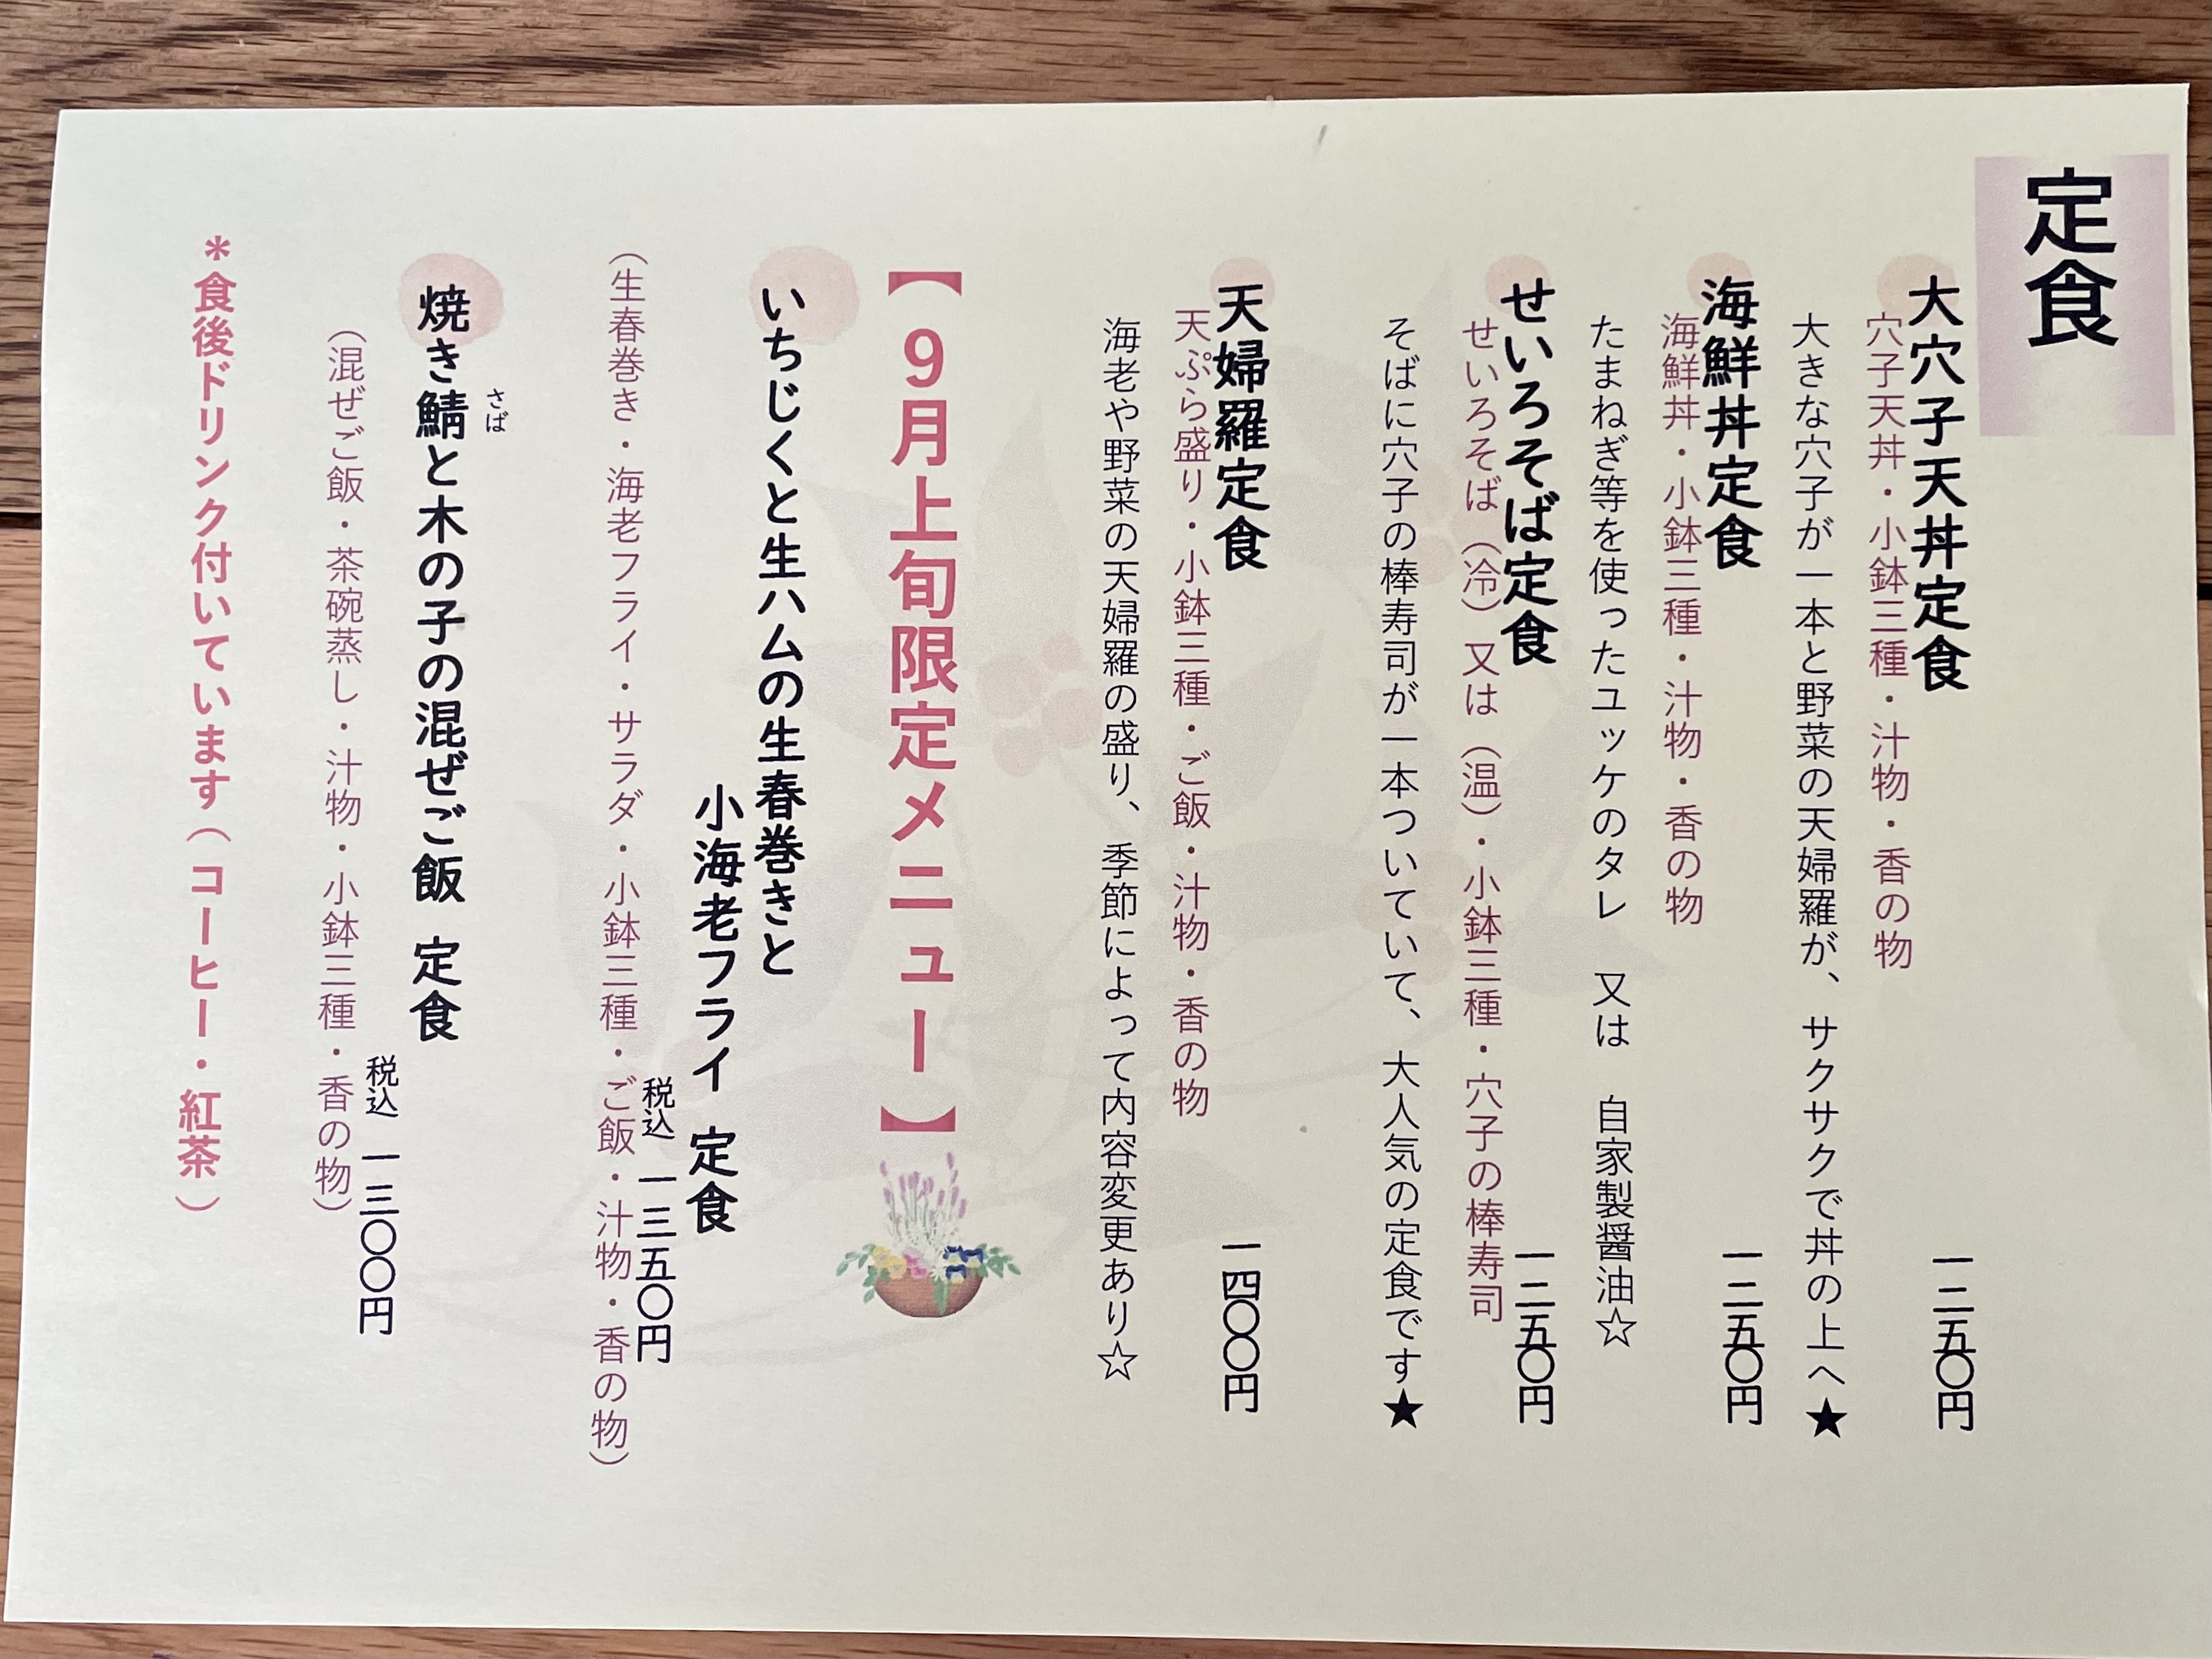 定食
大穴子天丼定食 一二五〇円
穴子天丼・小鉢三種・汁物・香の物
大きな穴子が一本と野菜の天婦羅が、サクサクで丼の上へ★
海鮮丼定食 一二五〇円
海鮮丼・小鉢三種・汁物・香の物
たまねぎ等を使ったユッケのタレ 又は 自家製醤油☆
せいろそば定食 一二五〇円
せいろそば（冷）又は（温）・小鉢三種・穴子の棒寿司
そばに穴子の棒寿司が一本ついていて、大人気の定食です★
天婦羅定食 一四〇〇円
天ぷら盛り・小鉢三種・ご飯・汁物・香の物
海老や野菜の天婦羅の盛り、季節によって内容変更あり☆
【9月上旬限定メニュー】
いちじくと生ハムの生春巻きと
小海老フライ 定食
税込 一三五〇円
（生春巻き・海老フライ・サラダ・小鉢三種・ご飯・汁物・香の物）
さば
焼き鯖と木の子の混ぜご飯 定食
税込 一三〇〇円
（混ぜご飯・茶碗蒸し・汁物・小鉢三種・香の物）
＊食後ドリンク付いています（コーヒー・紅茶）